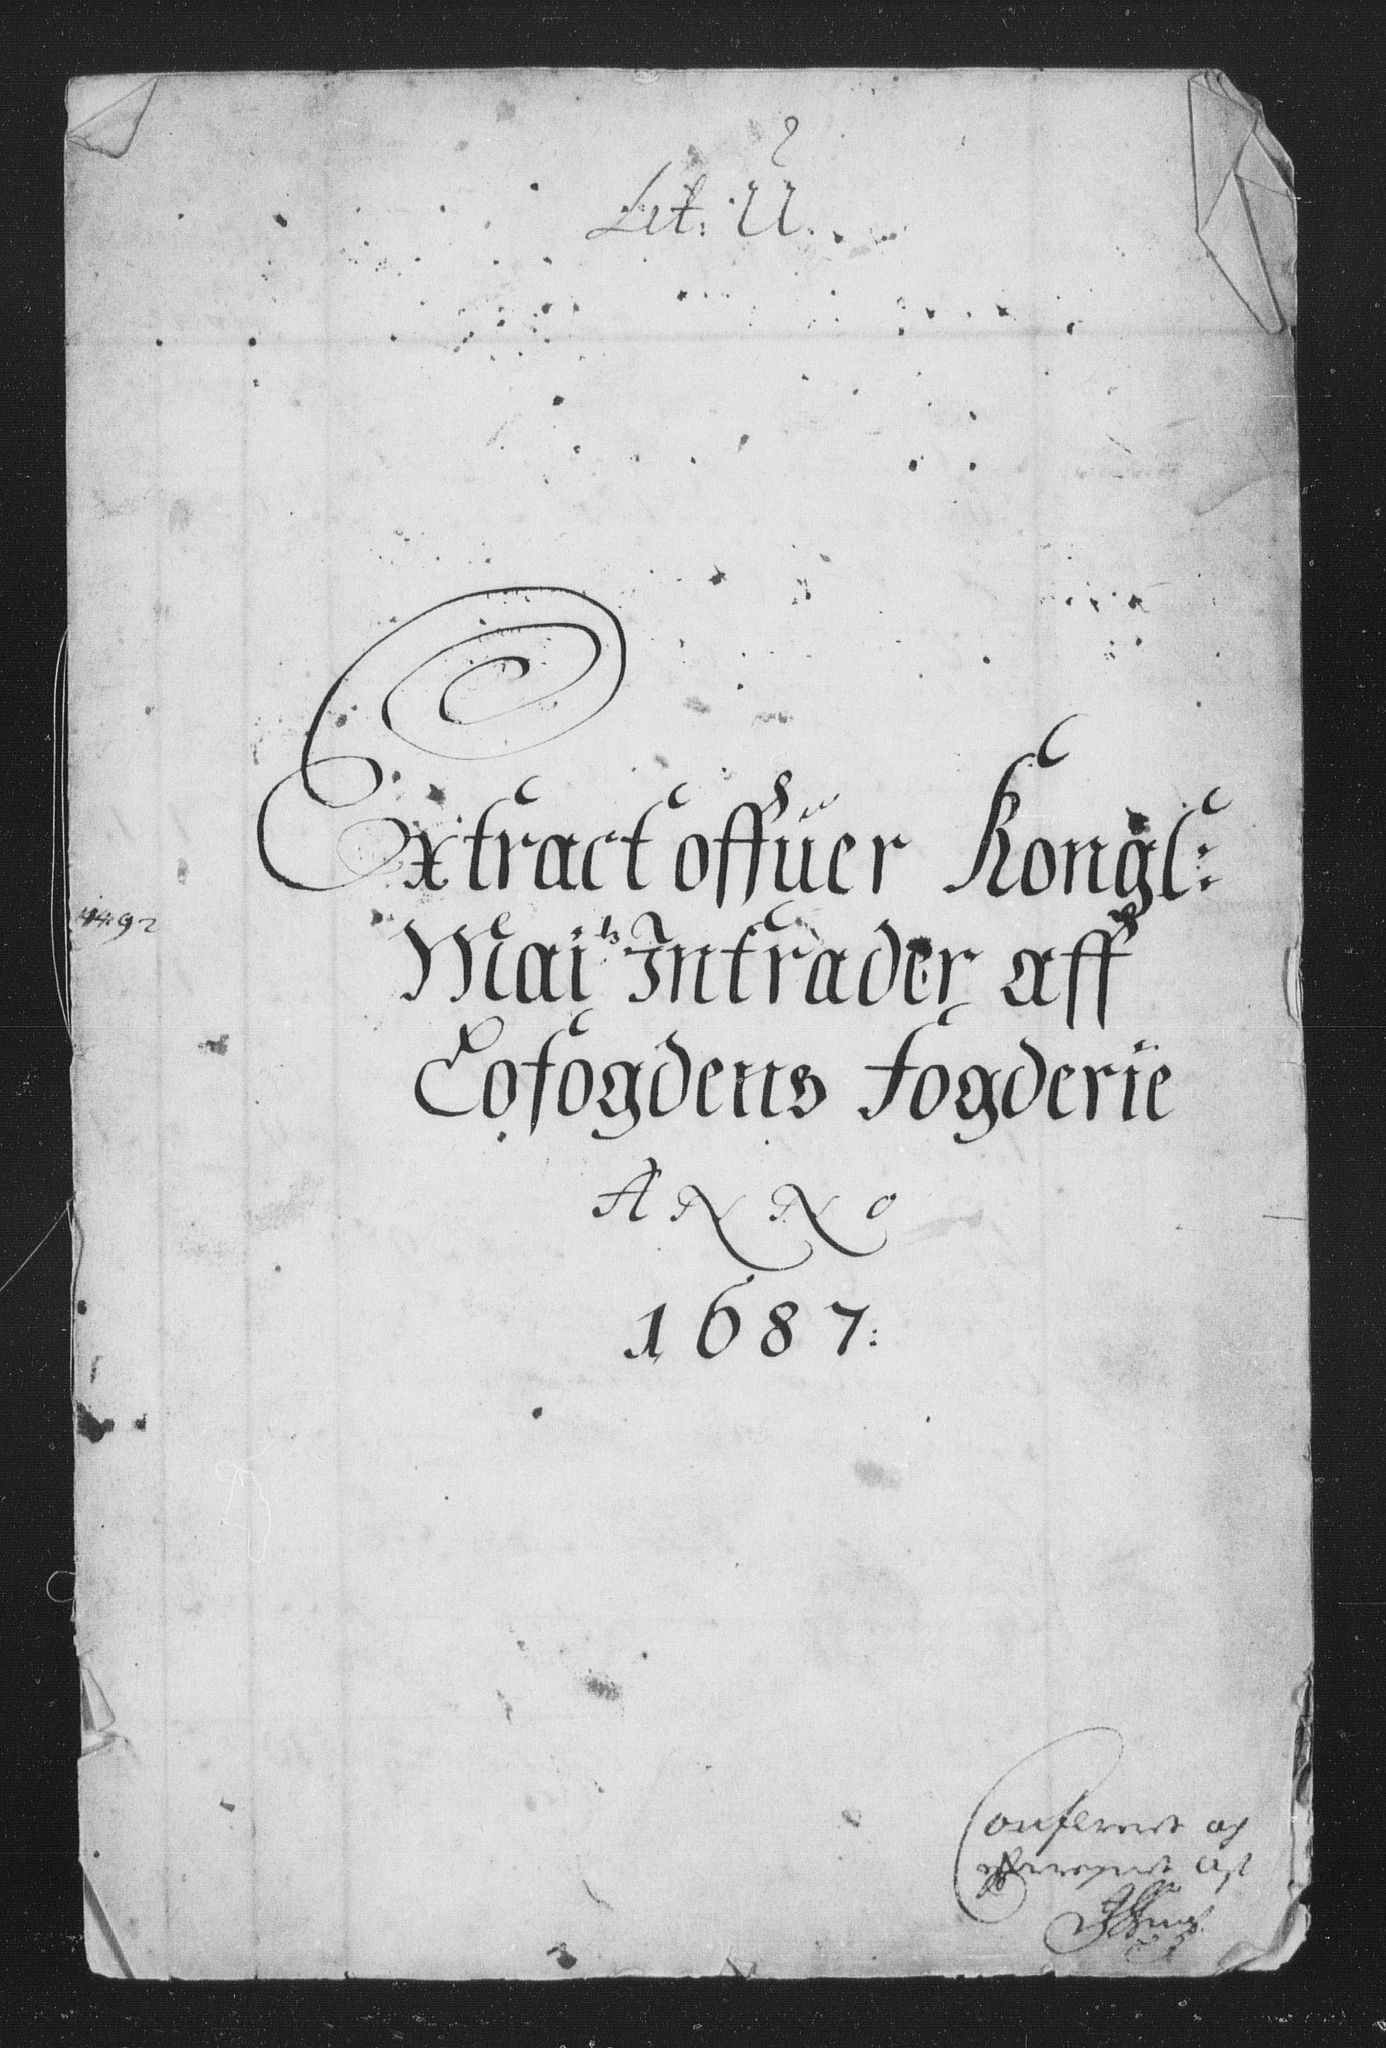 Lit. U.
Extract offuer Kongl:
Maits Intrader aff
Lofogdens fogderie
ANNo
1687:
4492
Conferert og